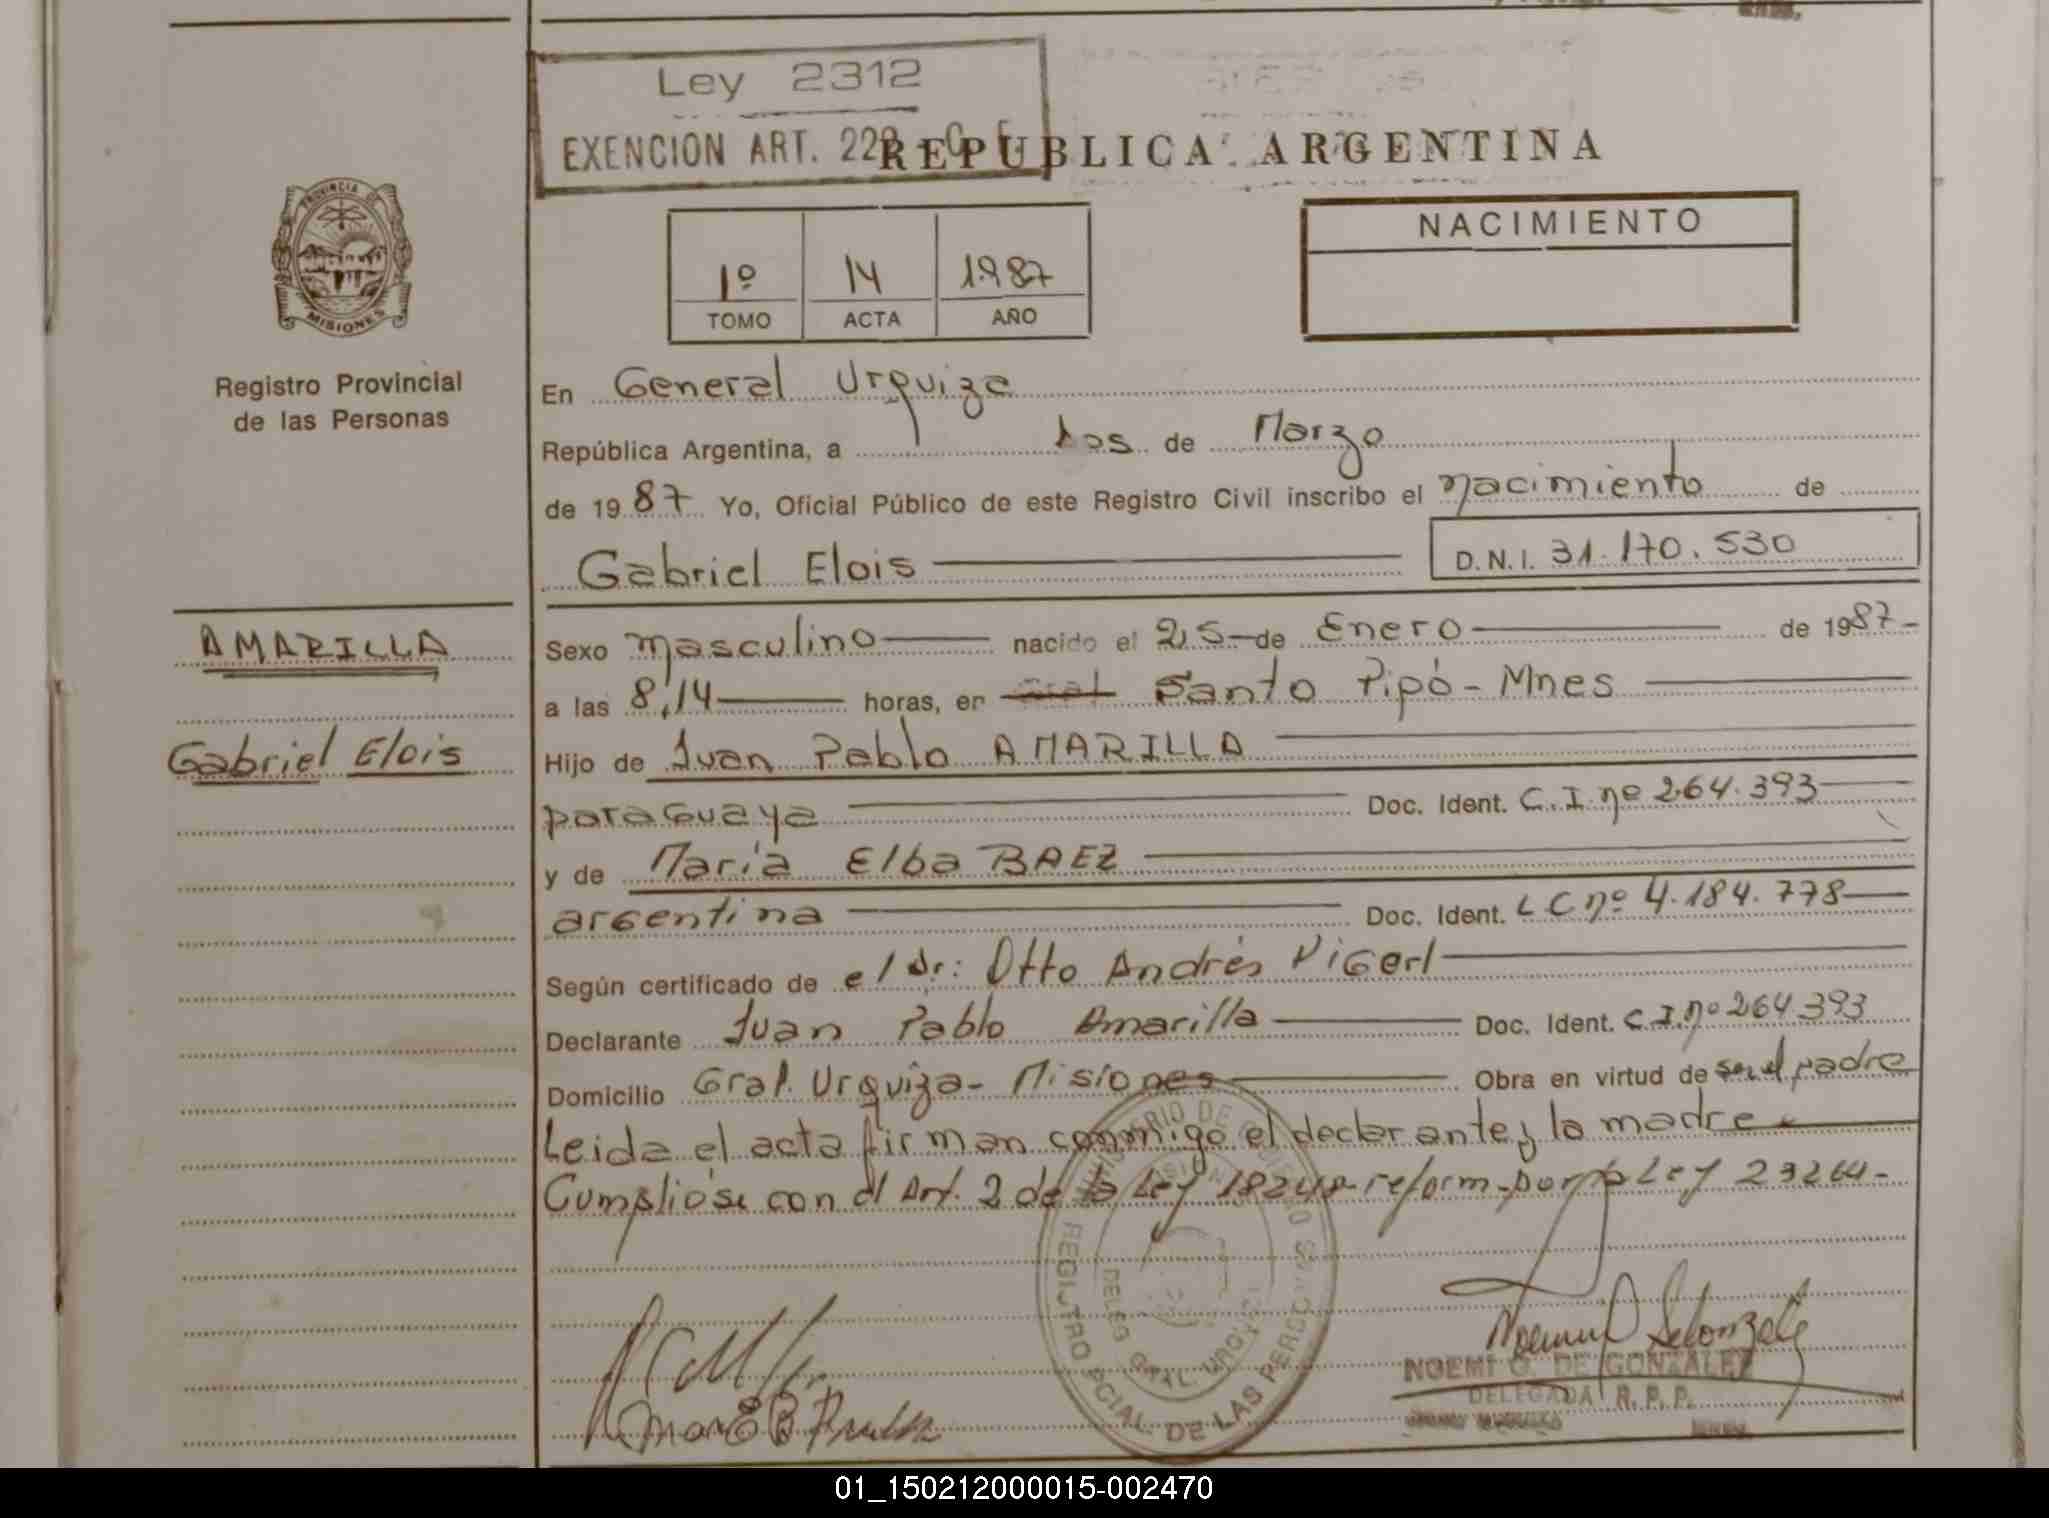 Ley 2312
EXENCION ART. 222
REPUBLICA ARGENTINA
PROVINCIA DE
MISIONES
Registro Provincial
de las Personas
1º 14 1987
TOMO ACTA AÑO
NACIMIENTO
En General Urquiza
República Argentina, a dos de Marzo
de 1987 Yo, Oficial Público de este Registro Civil inscribo el nacimiento de
Gabriel Elois
D.N.I. 31.170.530
AMARILLA
Gabriel Elois
Sexo masculino nacido el 25 de Enero de 1987
a las 8,14 horas, en Gral Santo Pipó - Mnes
Hijo de Juan Pablo AMARILLA
paraguaya Doc. Ident. C.I. nº 264.393
y de María Elba BAEZ
argentina Doc. Ident. LC nº 4.184.778
Según certificado de el Dr: Otto Andrés
Declarante Juan Pablo Amarilla Doc. Ident. C.I. nº 264.393
Domicilio Gral. Urquiza - Misiones Obra en virtud de ser el padre
Leida el acta firman conmigo el declarante y la madre
Cumpliose con el Art. 2 de la Ley 18248 reform. por la Ley 23264 -
MINISTERIO DE
REGISTRO PCIAL. DE LAS PERSONAS
DELEG. GRAL. URQUIZA
NOEMI G. DE GONZALEZ
DELEGADA R. P. P.
01_150212000015-002470